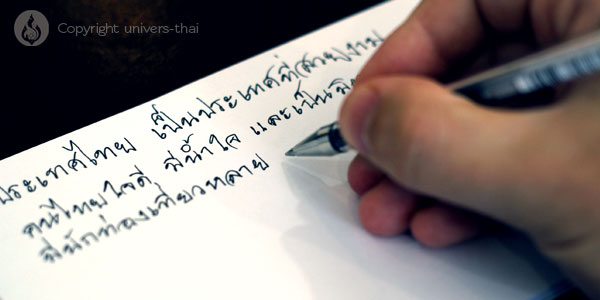 Copyright univers-thai
ประเทศไทย เป็นประเทศที่สวยงาม
คนไทยใจดี มีน้ำใจ และเป็นมิ
มีนักท่องเที่ยวหลาย